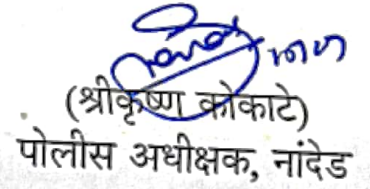 (श्रीकृष्ण कोकाटे)
पोलीस अधीक्षक, नांदेड